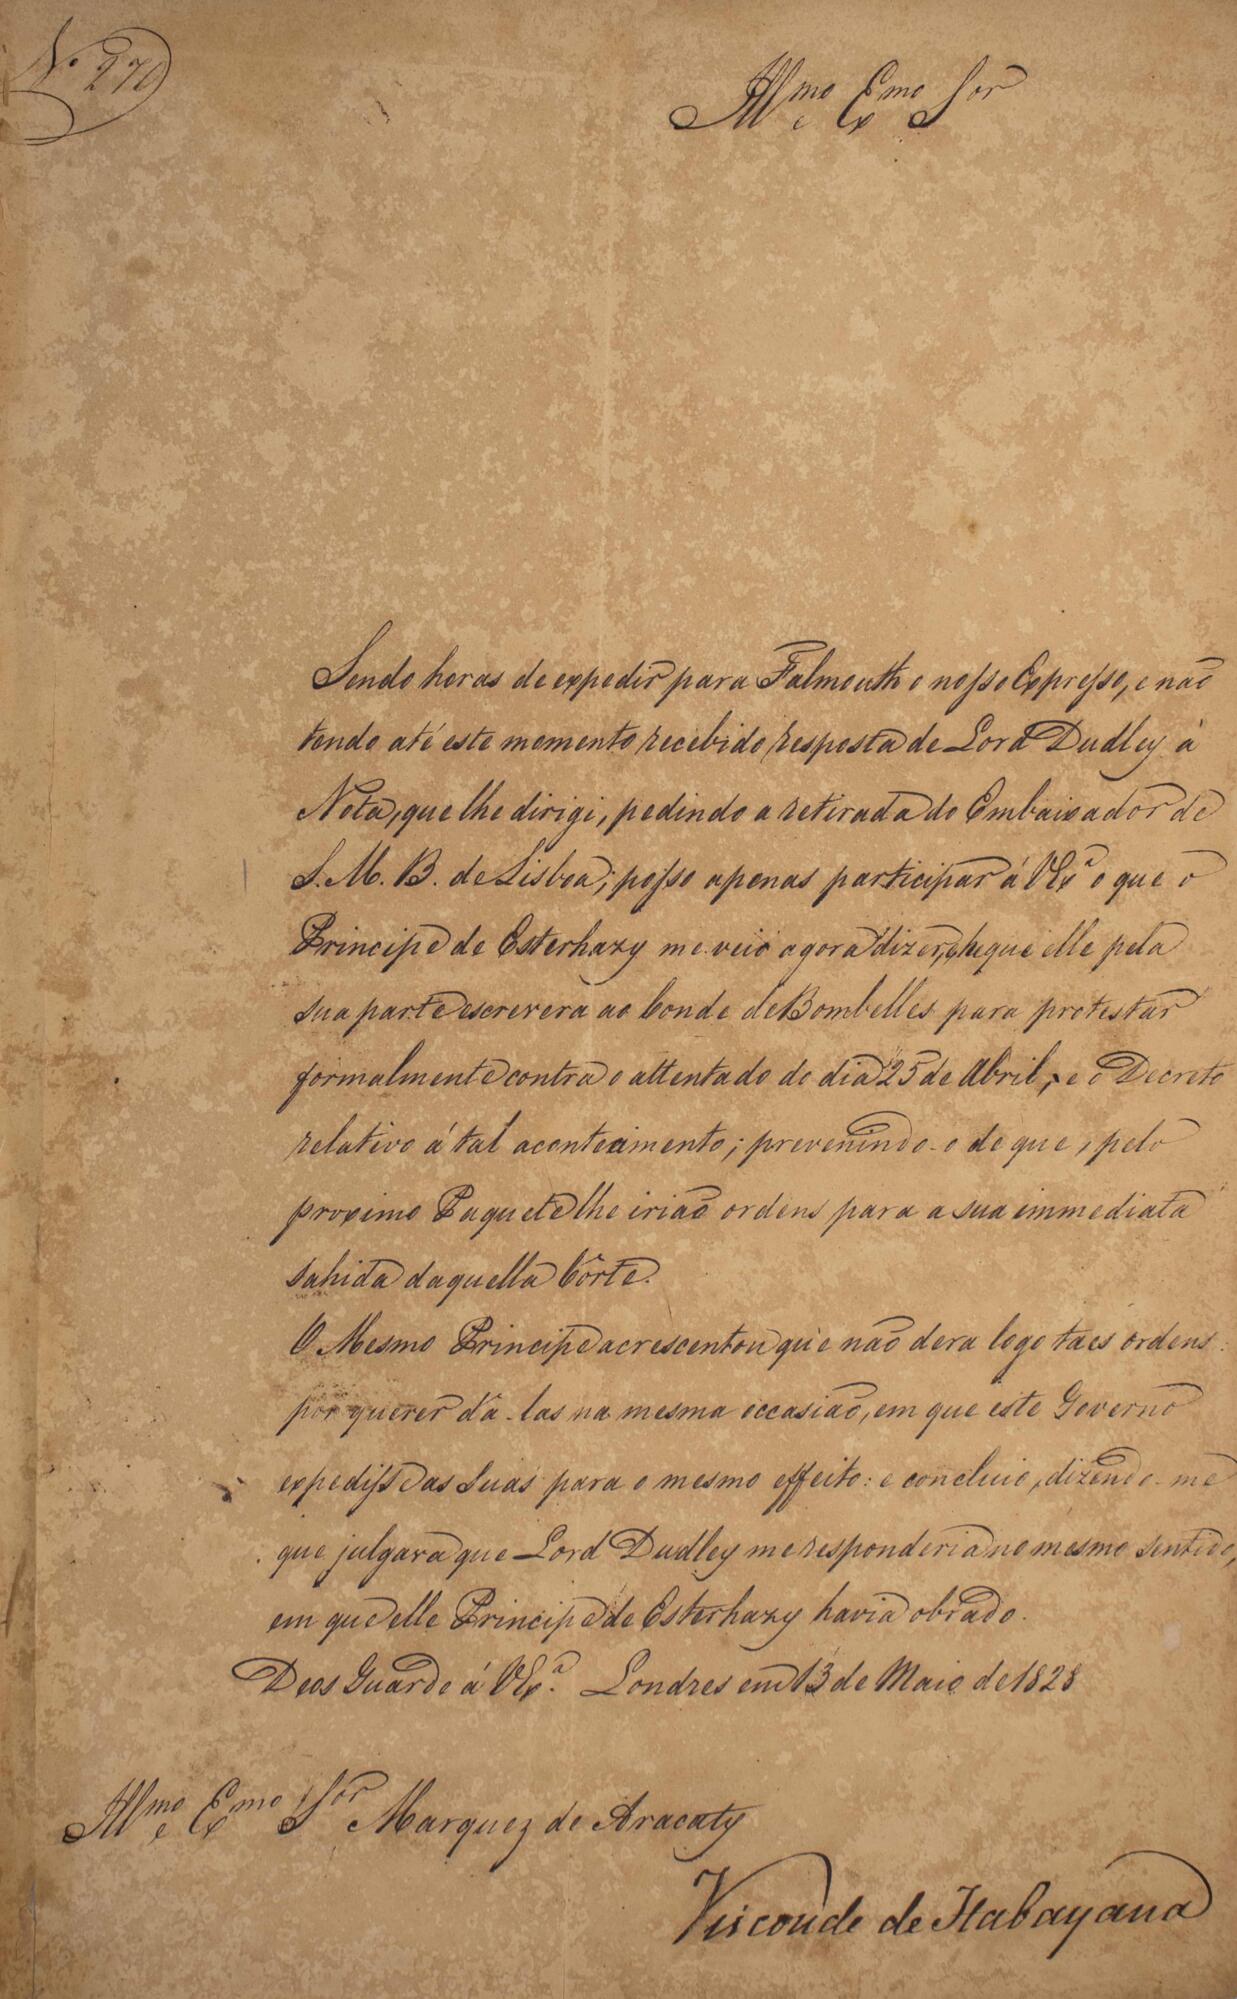 N.º 270
Ill.mo e Ex.mo Sor
Sendo horas de expedir para Falmouth o nosso Expresso, e não
tendo até este momento recebido resposta de Lord Dudley á
Nota, que lhe dirigi, pedindo a retirada do Embaixador de
S. M. B. de Lisboa; posso apenas participar á VEx.ª o que o
Principe de Esterhazy me veio agora dizer, he que elle pela
sua parte escrevera ao Conde de Bombelles para protestar
formalmente contra o attentado do dia 25 de Abril, e o Decreto
relativo á tal acontecimento; prevenindo-o de que, pelo
proximo Paquete lhe irião ordens para a sua immediata
sahida daquella Côrte.
O Mesmo Principe acrescentou que não dera logo taes ordens
por querer dá-las na mesma occasião, em que este Governo
expedisse as Suas para o mesmo effeito: e concluio, dizendo-me
que julgava que Lord Dudley me responderia no mesmo sentido,
em que elle Principe de Esterhazy havia obrado.
Deos Guarde á VEx.ª Londres em 13 de Maio de 1828
Ill.mo e Ex.mo Sor Marquez de Aracaty
Visconde de Itabayana